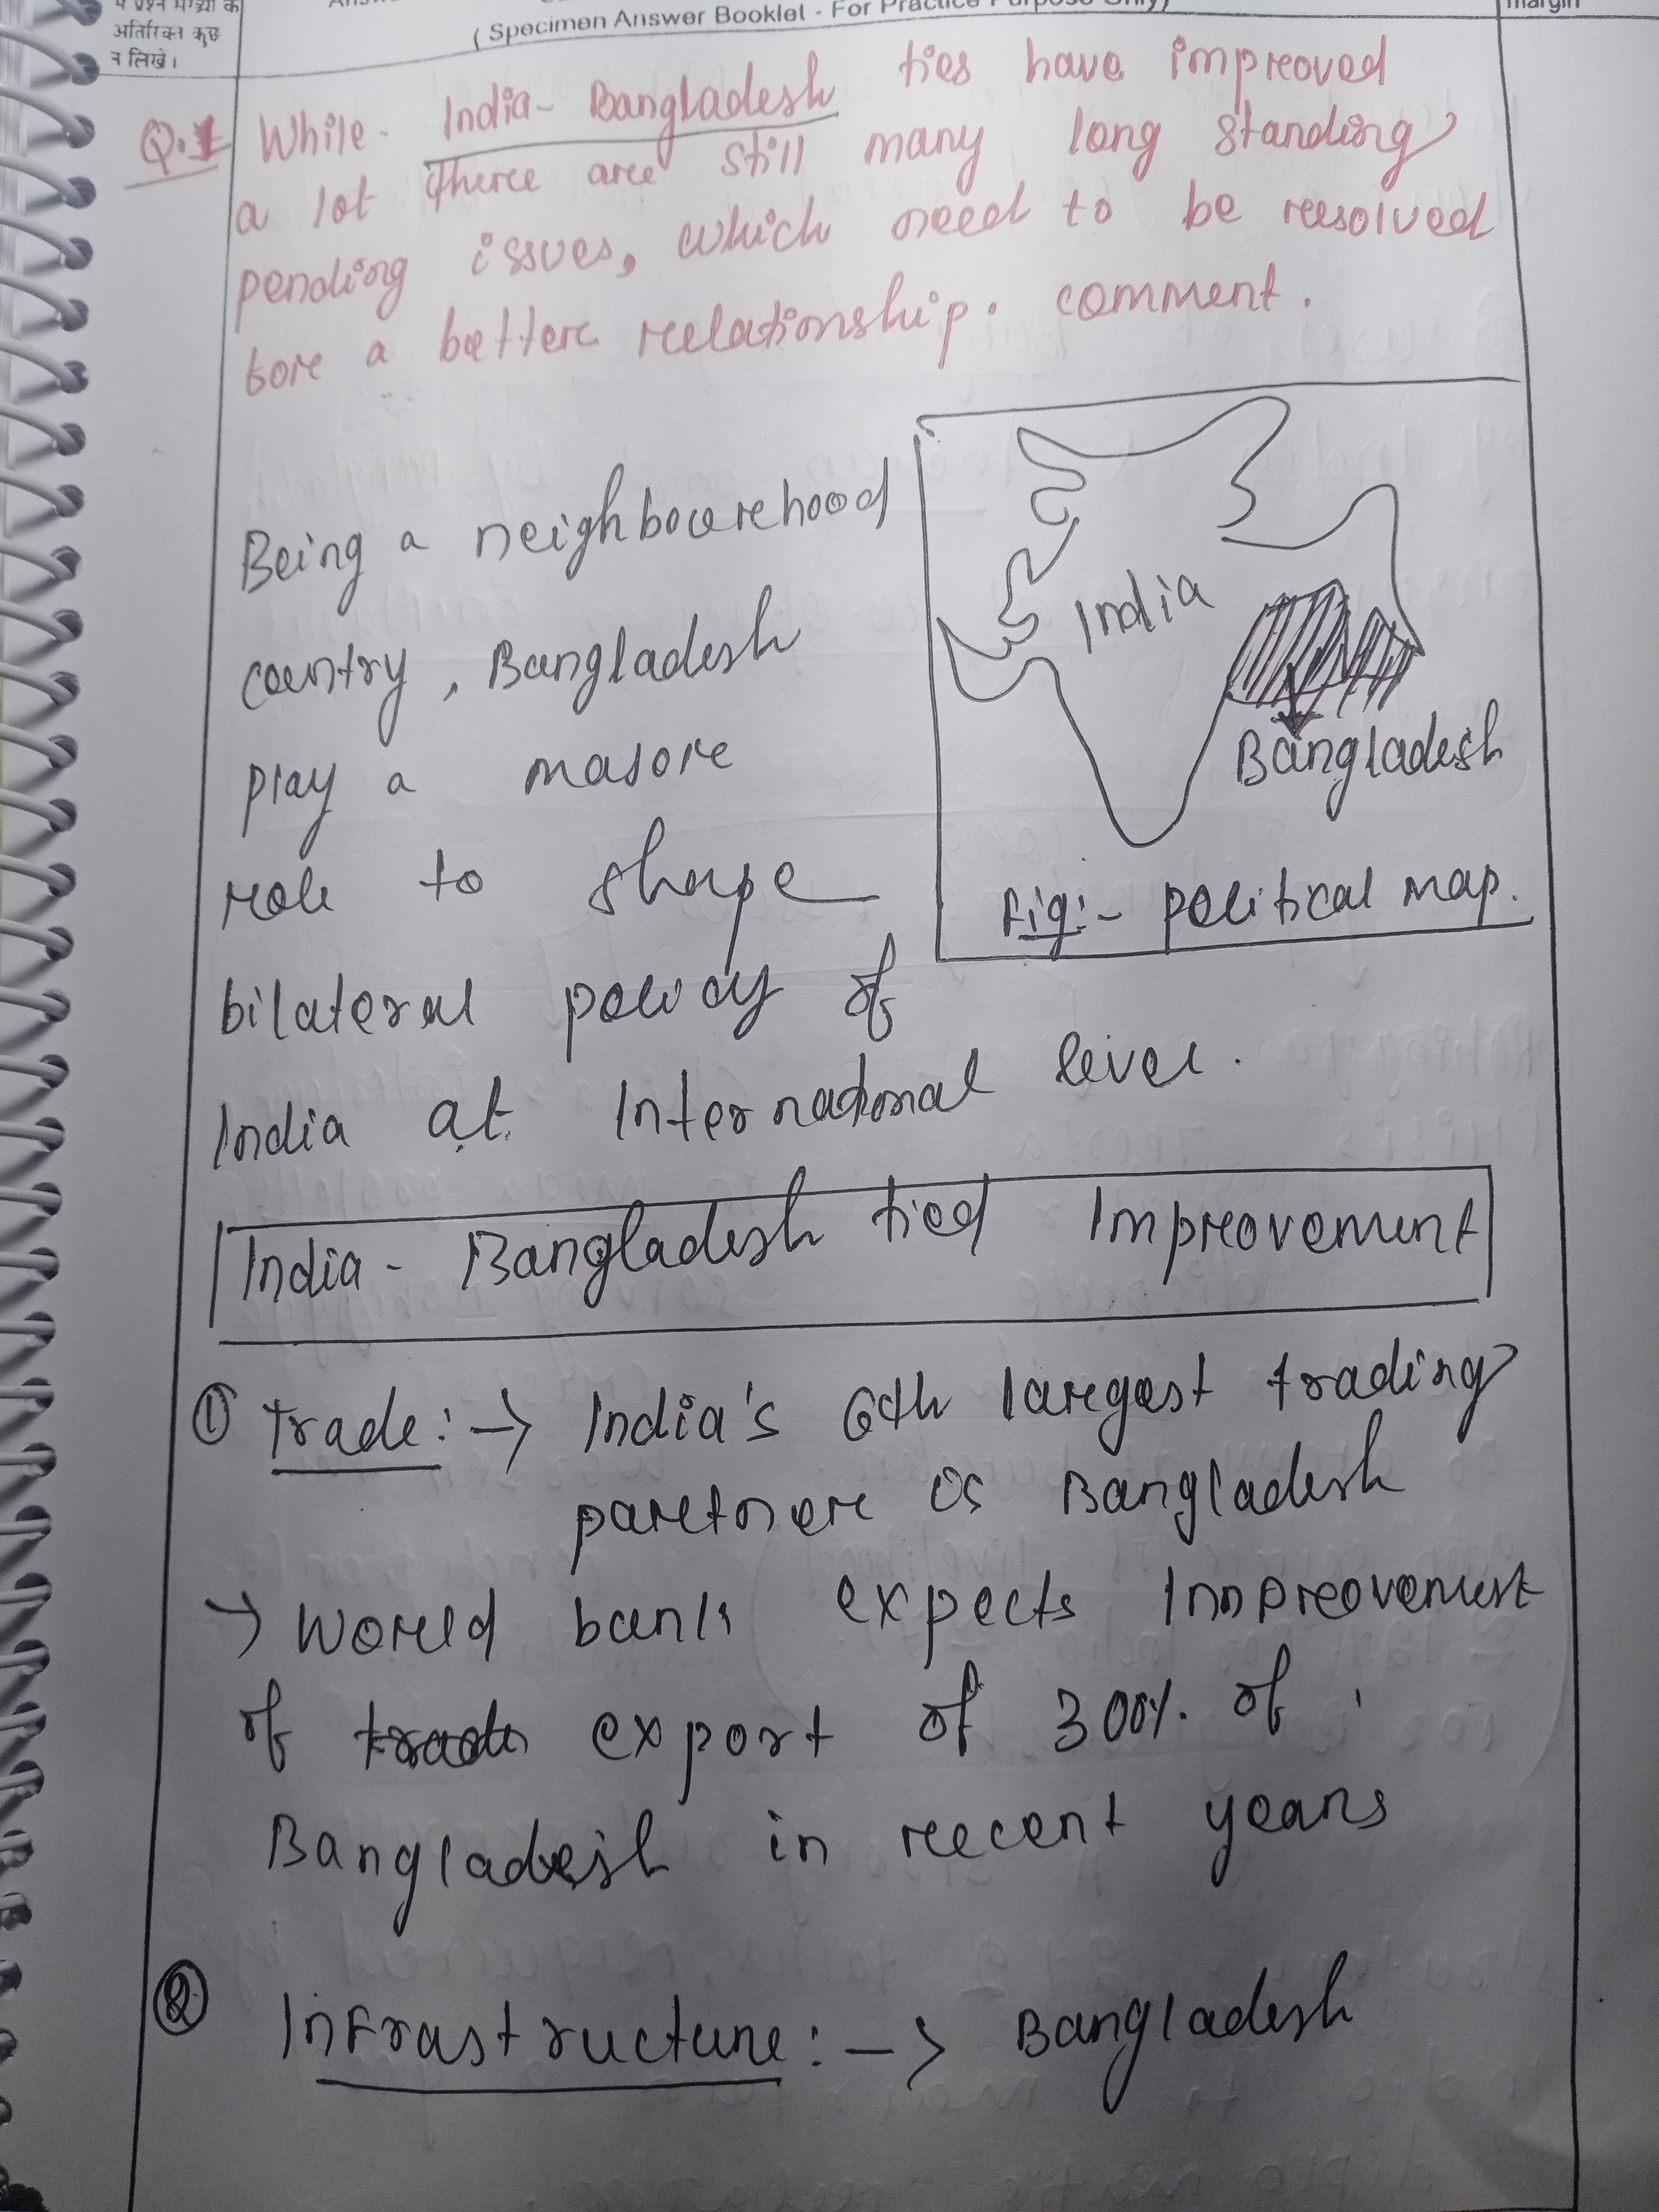 अतिरिक्त कुछ
न लिखें।
( Specimen Answer Booklet - For Practice Purpose Only)
margin
Q.1 While India- Bangladesh ties have improved
a lot there are still many long standing
pending issues, which need to be resolved
for a better relationship. comment.
Being a neighbourhood
country, Bangladesh
play a major
role to shape
bilateral policy of
India at International level.
India
Bangladesh
Fig:- political map.
India - Bangladesh tied Improvement
① Trade :-> India's 6th largest trading
partner is Bangladesh
-> World bank expects Improvement
of trade export of 300% of
Bangladesh in recent years
② Infrastructure :-> Bangladesh